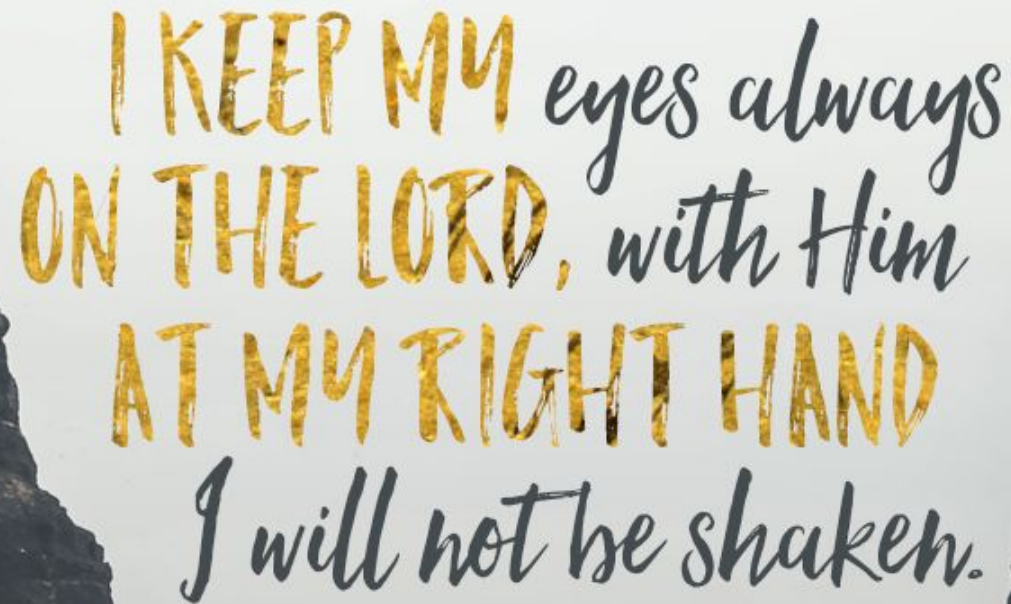 I KEEP MY eyes always
ON THE LORD, with Him
AT MY RIGHT HAND
I will not be shaken.